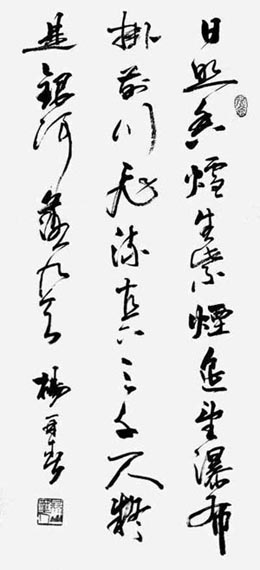 日照香爐生紫煙遙望瀑布
掛前川飛流直下三千尺疑
是銀河落九天 楊再春